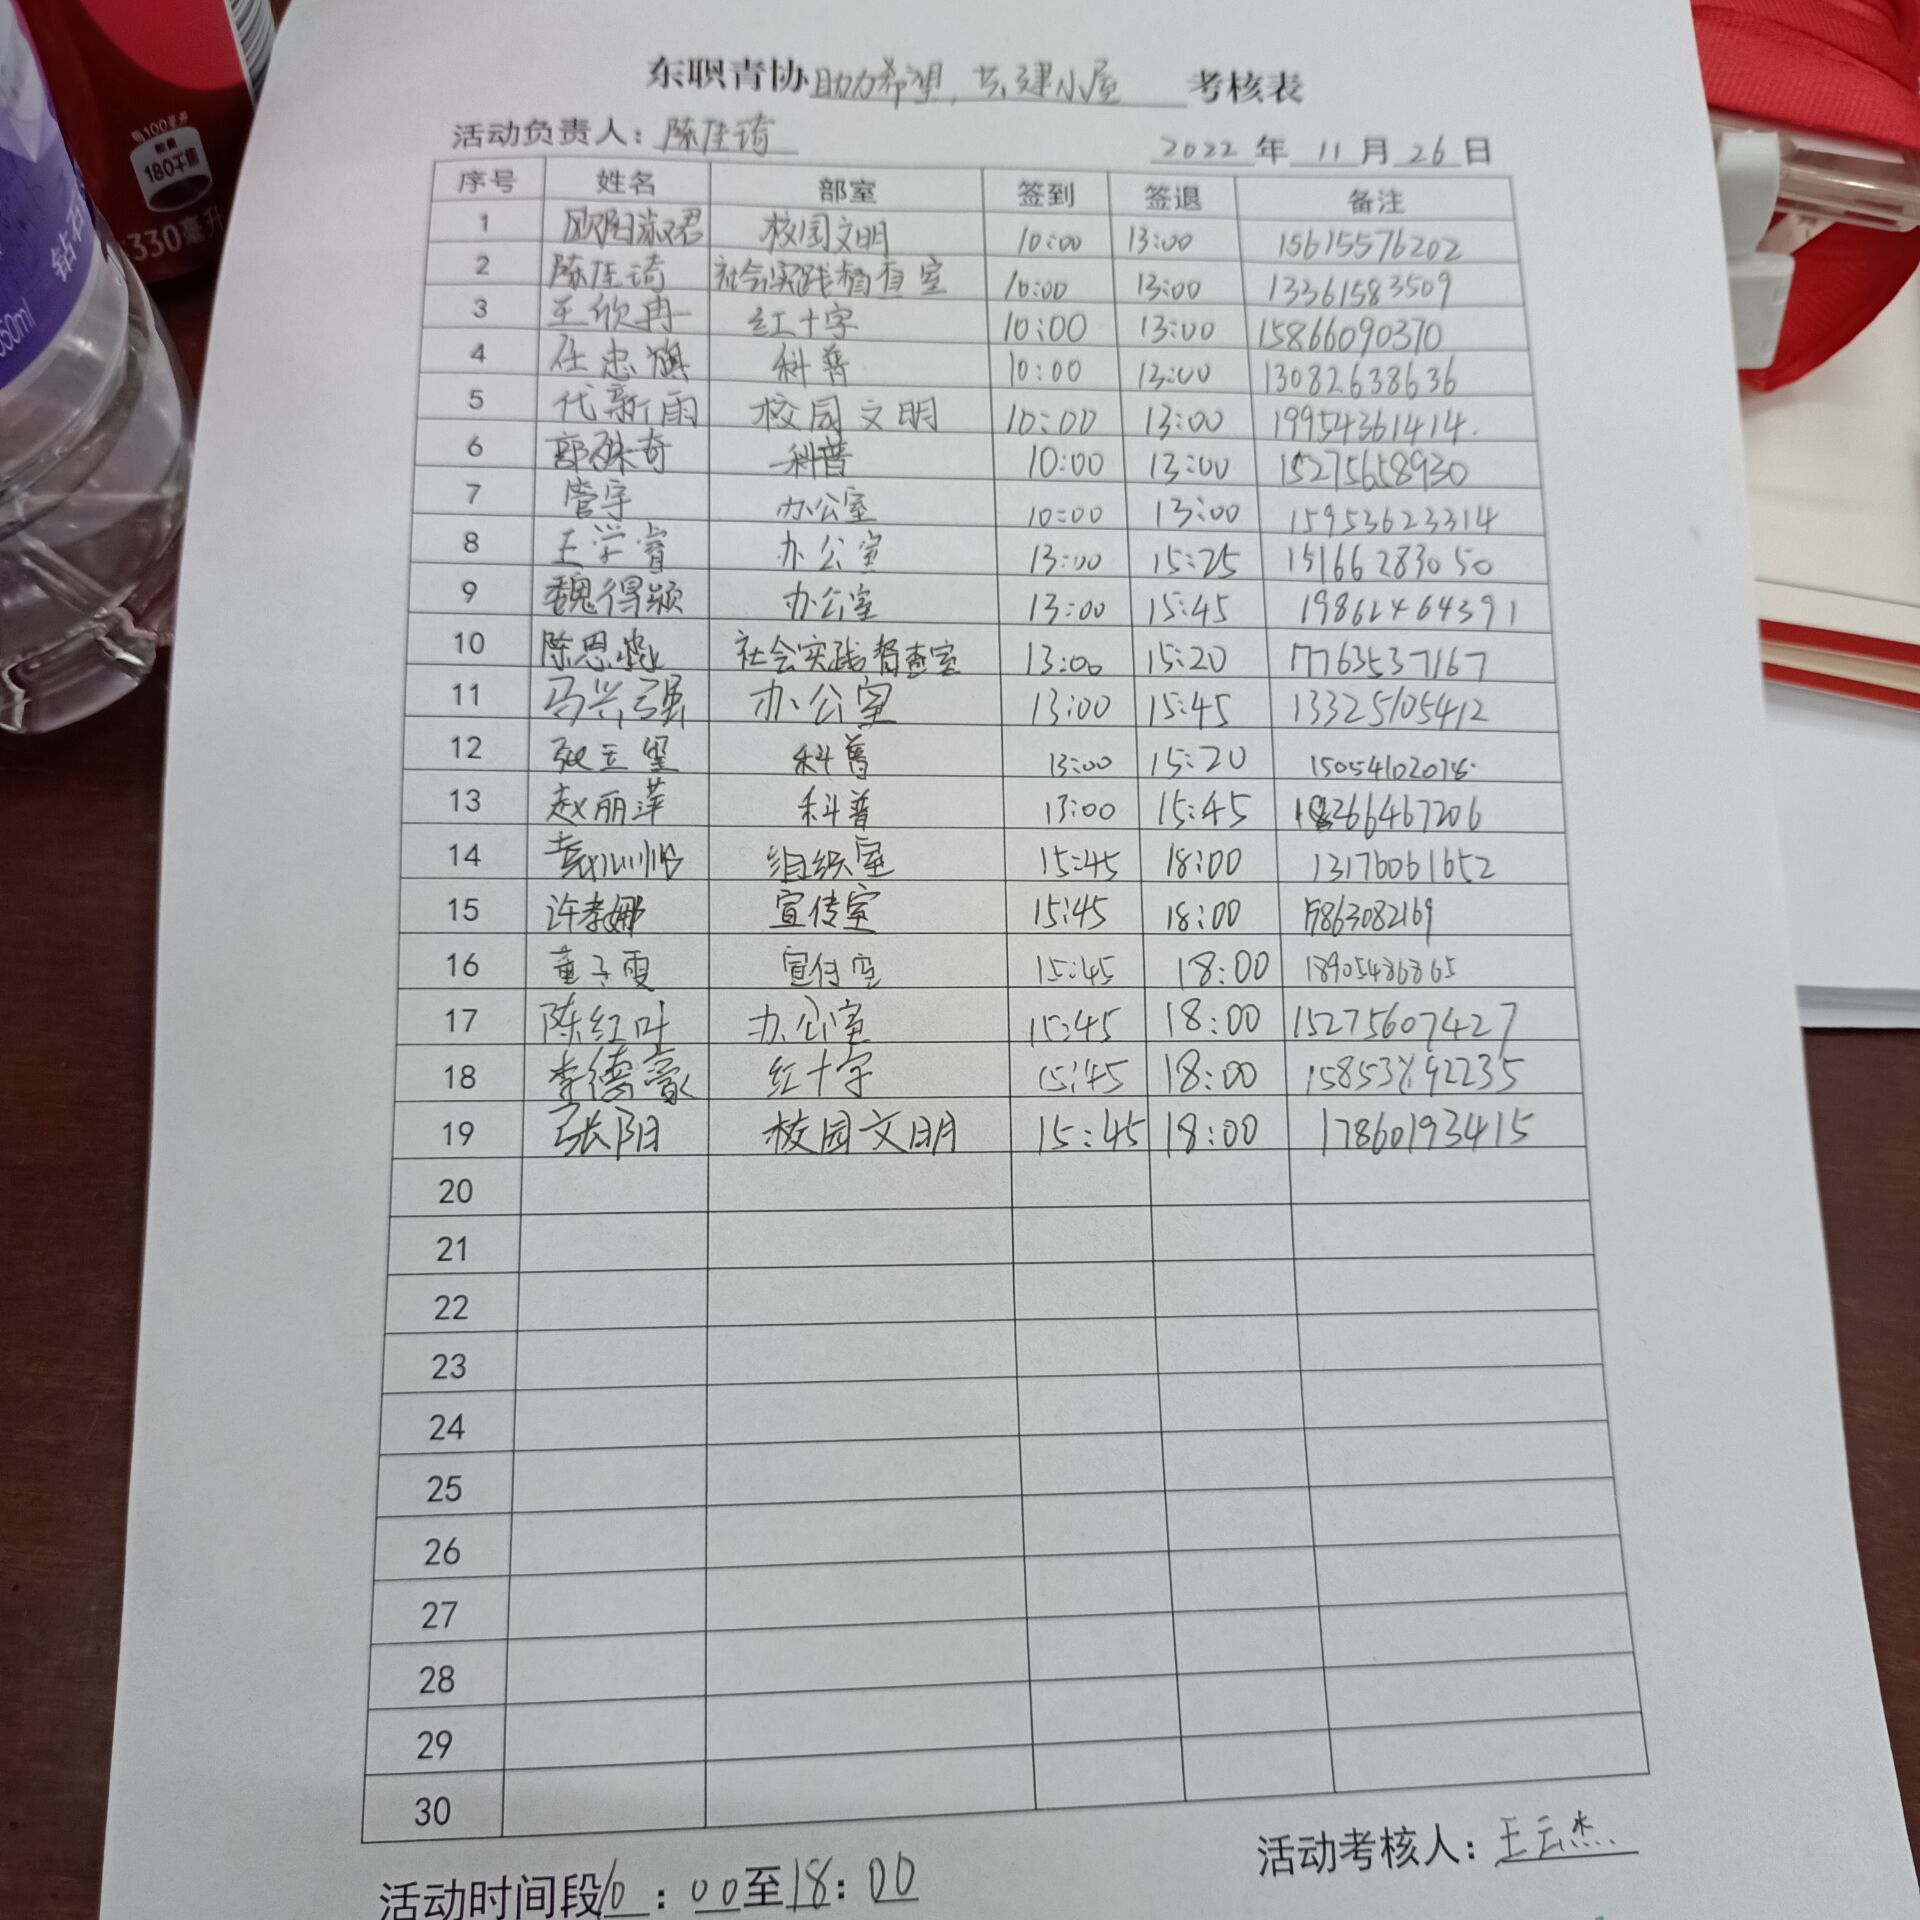 每100毫升
能量
180千焦
330毫升
钻石
550ml
东职青协助力希望,共建小屋 考核表
活动负责人:陈佳琦 2022年11月26日
序号 姓名 部室 签到 签退 备注
1 欧阳淑君 校园文明 10:00 13:00 15615576202
2 陈佳琦 社会实践督查室 10:00 13:00 13361583509
3 王欣冉 红十字 10:00 13:00 15866090370
4 任忠旗 科普 10:00 13:00 13082638636
5 代新雨 校园文明 10:00 13:00 19954361414.
6 郭殊奇 科普 10:00 13:00 15275658930
7 管宇 办公室 10:00 13:00 15953623314
8 王学睿 办公室 13:00 15:25 15166283050
9 魏得颖 办公室 13:00 15:45 19862464391
10 陈思 社会实践督查室 13:00 15:20 17763537167
11 马兴强 办公室 13:00 15:45 13325105412
12 张玉玺 科普 13:00 15:20
13 赵丽萍 科普 13:00 15:45 18266467206
14 组织室 15:45 18:00 13176061652
15 许孝娜 宣传室 15:45 18:00 19863082169
16 董子雯 宣传室 15:45 18:00 18905486865
17 陈红叶 办公室 15:45 18:00 15275607427
18 李德豪 红十字 15:45 18:00
19 张阳 校园文明 15:45 18:00 17860193415
20
21
22
23
24
25
26
27
28
29
30
活动考核人:王云杰
活动时间段10:00至18:00